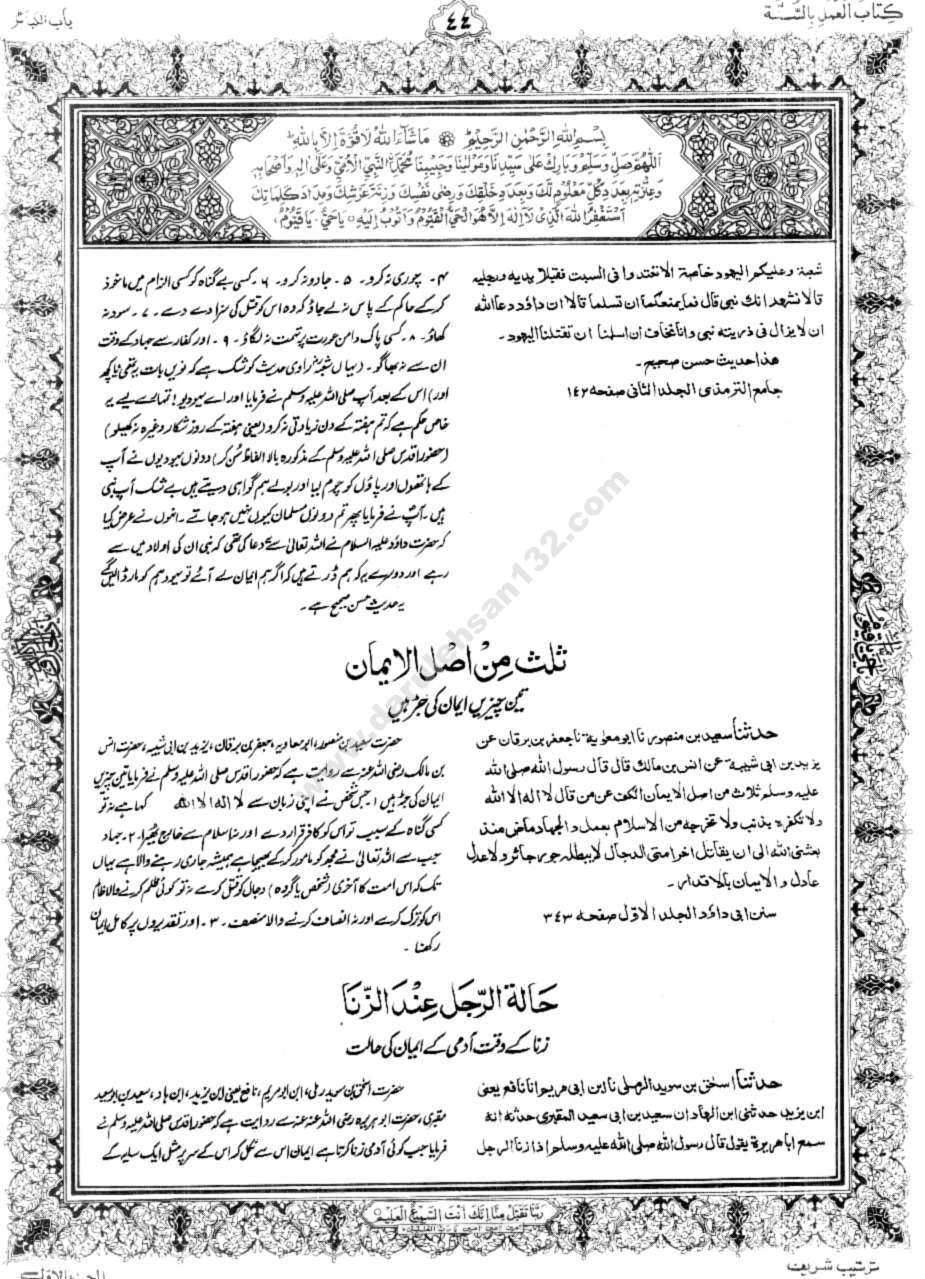 كتاب العمل بالسنة
٤٤
باب الكبائر
بسم الله الرحمن الرحيم ما شاء الله لا قوة الا بالله
اللهم صل وسلم وبارك على سيدنا ومولينا وحبيبنا محمد النبي الأمي وعلى اله واصحابه
وعترته بعدد كل معلوم لك وبعدد خلقك ورضى نفسك وزنة عرشك ومداد كلماتك
استغفر الله الذي لا اله الا هو الحي القيوم واتوب اليه يا حي يا قيوم
شعبة وعليكم اليهود خاصة الا تعتدوا فى السبت فقبلا يديه ورجليه
قالا نشهد انك نبى قال فما يمنعكما ان تسلما قالا ان داؤد دعا الله
ان لا يزال فى ذريته نبى وانا نخاف ان اسلمنا ان تقتلنا اليهود۔
هذا حديث حسن صحيح۔
جامع الترمذى الجلد الثانى صفحه ١٤٢
۴۔ چوری نہ کرو۔ ۵۔ جادو نہ کرو۔ ۶۔ کسی بے گناہ کو کسی الزام میں ماخوذ
کرکے حاکم کے پاس نہ لے جاؤ کہ وہ اس کو قتل کی سزا دے دے۔ ۷۔ سود نہ
کھاؤ۔ ۸۔ کسی پاک دامن عورت پر تہمت نہ لگاؤ۔ ۹۔ اور کفار سے جہاد کے وقت
ان سے نہ بھاگو۔ (یہاں شعبہ راوی حدیث کو شک ہے کہ نویں بات یہ تھی یا کچھ
اور) اس کے بعد آپ صلی اللہ علیہ وسلم نے فرمایا اور اے یہودیو! تمہارے لیے یہ
خاص حکم ہے کہ تم ہفتہ کے دن زیادتی نہ کرو (یعنی ہفتہ کے روز شکار وغیرہ نہ کھیلو)
(حضور اقدس صلی اللہ علیہ وسلم کے مذکورہ بالا الفاظ سُن کر) دونوں یہودیوں نے آپ
کے ہاتھوں اور پاؤں کو چوم لیا اور بولے ہم گواہی دیتے ہیں بے شک آپ نبی
ہیں۔ آپؐ نے فرمایا پھر تم دونوں مسلمان کیوں نہیں ہو جاتے۔ انہوں نے عرض کیا
کہ حضرت داؤد علیہ السلام نے اللہ تعالیٰ سے دعا کی تھی کہ نبی ان کی اولاد میں سے
رہے اور دوسرے یہ کہ ہم ڈرتے ہیں کہ اگر ہم ایمان لے آئے تو یہود ہم کو مار ڈالیں گے
یہ حدیث حسن صحیح ہے۔
ثلث من اصل الايمان
تین چیزیں ایمان کی جڑ ہیں
حدثنا سعيد بن منصور نا ابو معوية نا جعفر بن برقان عن
يزيد بن ابى شيبة عن انس بن مالك قال قال رسول الله صلى الله
عليه وسلم ثلاث من اصل الايمان الكف عن من قال لا اله الا الله
ولا تكفره بذنب ولا تخرجه من الاسلام بعمل والجهاد ماض منذ
بعثنى الله الى ان يقاتل اخر امتى الدجال لا يبطله جور جائر ولا عدل
عادل والايمان بالاقدار۔
سنن ابى داؤد الجلد الاول صفحه ٣٤٣
حضرت سعید بن منصور، ابو معاویہ، جعفر بن برقان، یزید بن ابی شیبہ، حضرت انس
بن مالک رضی اللہ عنہ سے روایت ہے کہ حضور اقدس صلی اللہ علیہ وسلم نے فرمایا تین چیزیں
ایمان کی جڑ ہیں ۱۔ جس شخص نے اپنی زبان سے لا الہ الا اللہ کہا ہے نہ تو
کسی گناہ کے سبب تو اس کو کافر قرار دے اور نہ اسلام سے خارج ٹھہرا۔ ۲۔ جہاد
جب سے اللہ تعالیٰ نے مجھ کو مامور کر کے بھیجا ہے ہمیشہ جاری رہنے والا ہے یہاں
تک کہ اس امت کا آخری (شخص یا گروہ) دجال کو قتل کرے نہ تو کوئی ظلم کرنے والا ظالم
اس کو ترک کرے اور نہ انصاف کرنے والا منصف۔ ۳۔ اور تقدیروں پر کامل ایمان
رکھنا۔
حالة الرجل عند الزنا
زنا کے وقت آدمی کے ایمان کی حالت
حدثنا اسحق بن سويد الرملى نا ابن ابى مريم انا نافع يعنى
ابن يزيد حدثنى ابن الهاد ان سعيد بن ابى سعيد المقبرى حدثه انه
سمع ابا هريرة يقول قال رسول الله صلى الله عليه وسلم اذا زنا الرجل
حضرت اسحٰق بن سوید رملی، ابن ابو مریم، نافع یعنی ابن یزید، ابن ہاد، سعید بن ابو سعید
مقبری، حضرت ابو ہریرہ رضی اللہ عنہ سے روایت ہے کہ حضور اقدس صلی اللہ علیہ وسلم نے
فرمایا جب کوئی آدمی زنا کرتا ہے ایمان اس سے نکل کر اس کے سر پر مثل ایک سایہ کے
ربنا تقبل منا انك انت السميع العليم
ترتیب شریف
www.darulehsan132.com